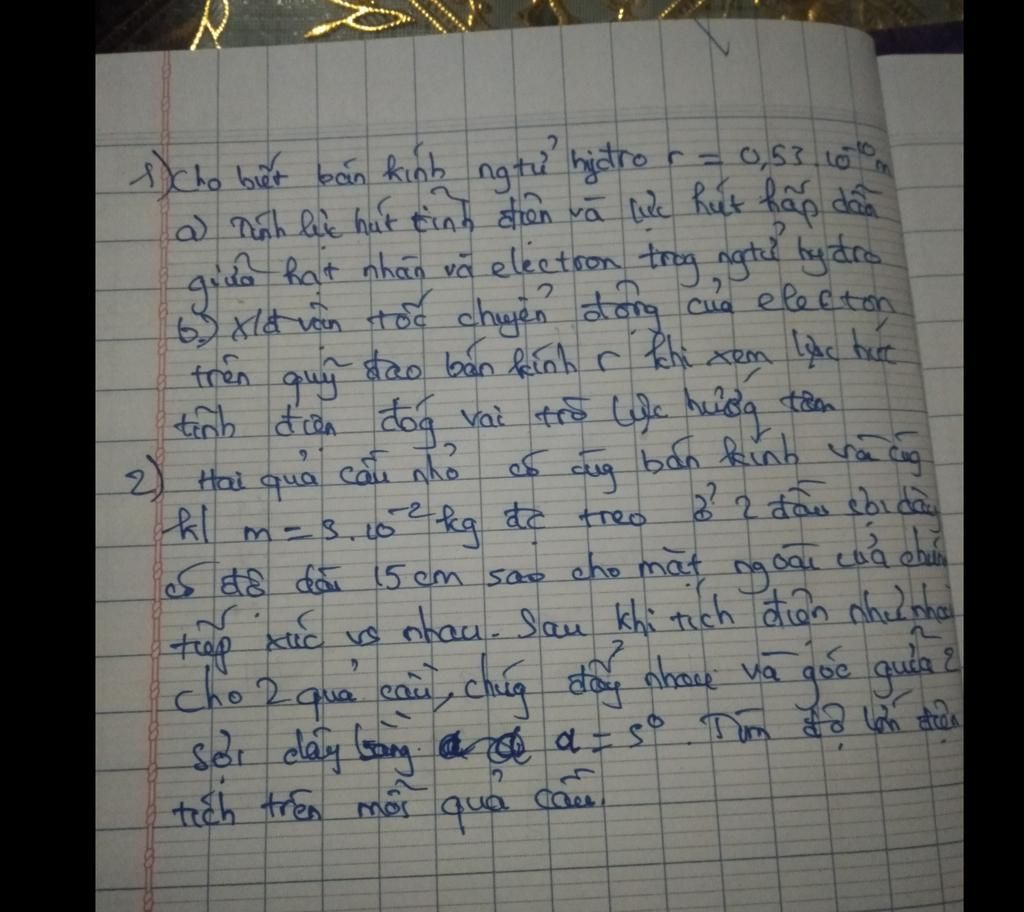 1) Cho biết bán kính ngtử hydro r = 0,53 10⁻¹⁰ m
a) Tính lực hút tĩnh điện và lực hút hấp dẫn
giữa hạt nhân và electron trog ngtử hydro
b) Xđ vận tốc chuyển động của electon
trên quỹ đạo bán kính r khi xem lực hút
tĩnh điện đóg vai trò lực hướg tâm
2) Hai quả cầu nhỏ có cùg bán kính và cùg
kl m = 3.10⁻² kg đc treo ở 2 đầu sợi dây
có độ dài 15 cm sao cho mặt ngoài của chúg
tiếp xúc vs nhau. Sau khi tích điện như nhau
cho 2 quả cầu, chúg đẩy nhau và góc giữa 2
sợi dây bằng α = 5°. Tìm độ lớn điện
tích trên mỗi quả cầu.